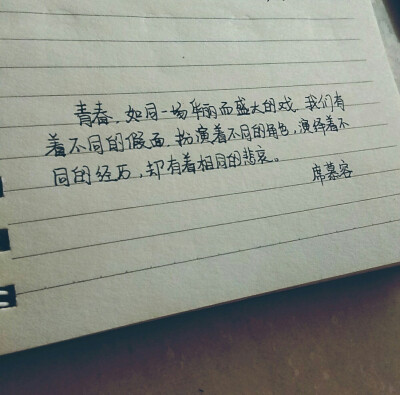 青春,如同一场华丽而盛大的戏,我们有
着不同的假面,扮演着不同的角色,演绎着不
同的经历,却有着相同的悲哀。
席慕容